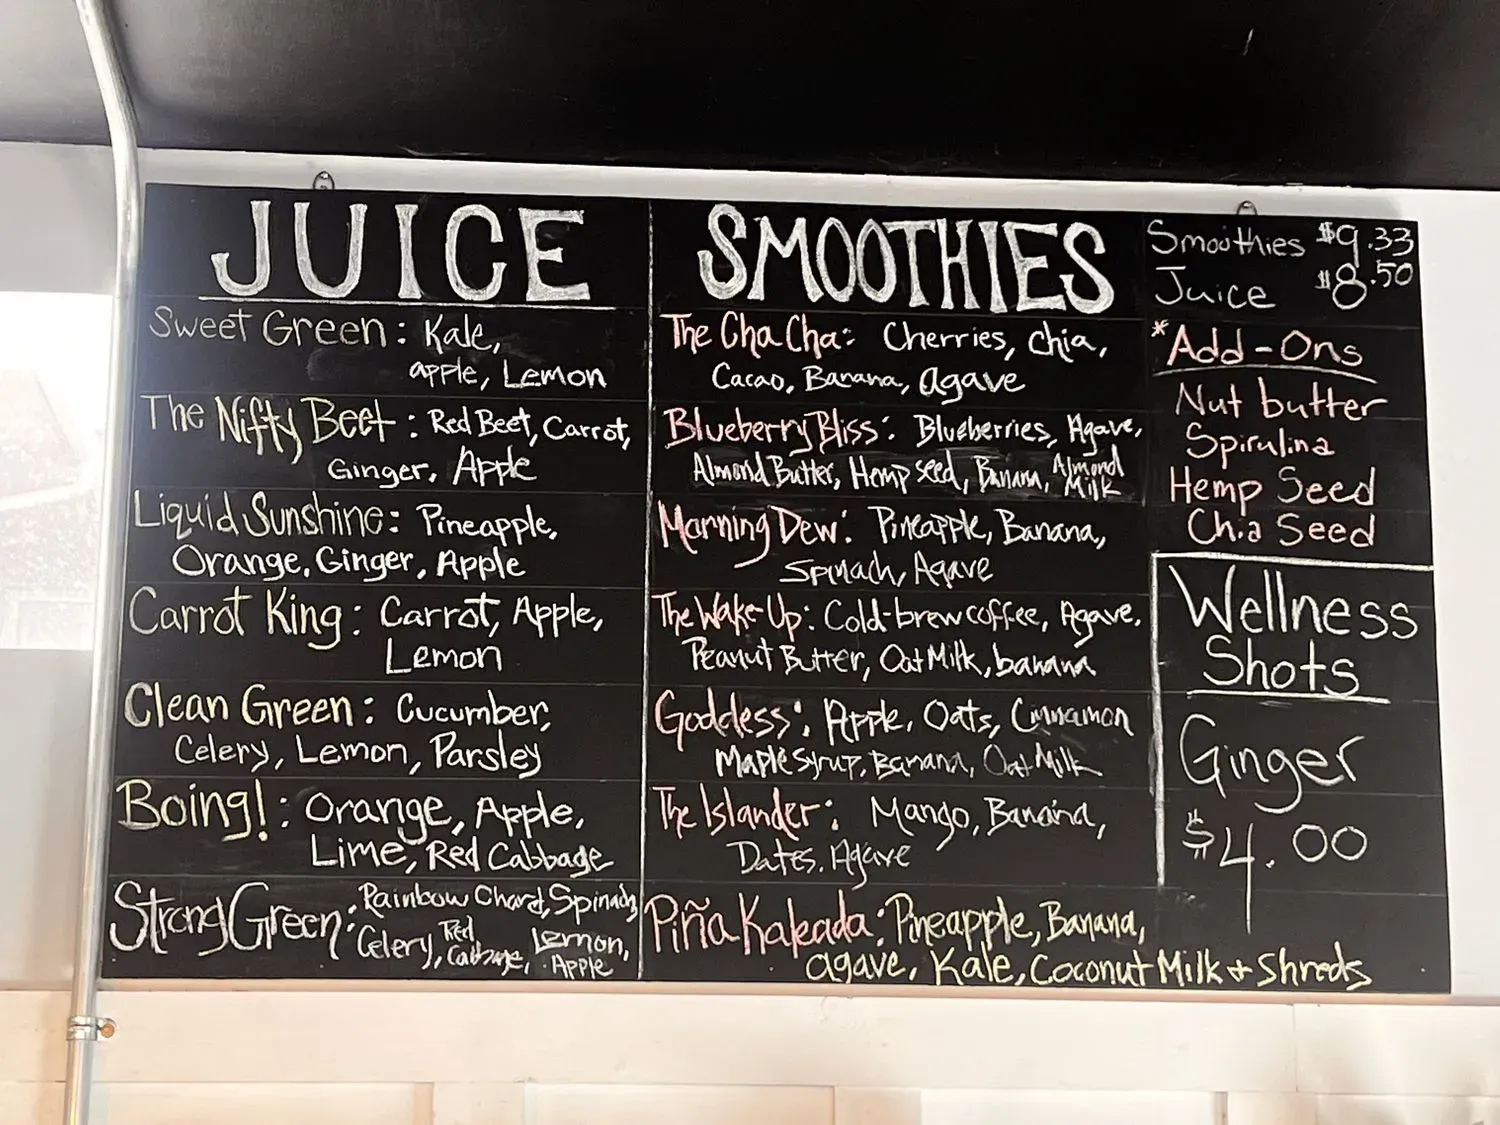 JUICE
Sweet Green: Kale,
apple, Lemon
The Nifty Beet: Red Beet, Carrot,
Ginger, Apple
Liquid Sunshine: Pineapple,
Orange, Ginger, Apple
Carrot King: Carrot, Apple,
Lemon
Clean Green: Cucumber,
Celery, Lemon, Parsley
Boing!: Orange, Apple,
Lime, Red Cabbage
Strong Green: Rainbow Chard, Spinach,
Celery, Red Cabbage, Lemon,
Apple
SMOOTHIES
The Cha Cha: Cherries, chia,
Cacao, Banana, agave
Blueberry Bliss: Blueberries, Agave,
Almond Butter, Hemp seed, Banana, Almond Milk
Morning Dew: Pineapple, Banana,
Spinach, Agave
The Wake-Up: Cold-brew coffee, Agave,
Peanut Butter, Oat Milk, banana
Goddess: Apple, Oats, Cinnamon
Maple Syrup, Banana, Oat Milk
The Islander: Mango, Banana,
Dates, Agave
Piña Kaleada: Pineapple, Banana,
agave, Kale, Coconut Milk + Shreds
Smoothies $9.33
Juice $8.50
*Add-Ons
Nut butter
Spirulina
Hemp Seed
Chia Seed
Wellness
Shots
Ginger
$4.00